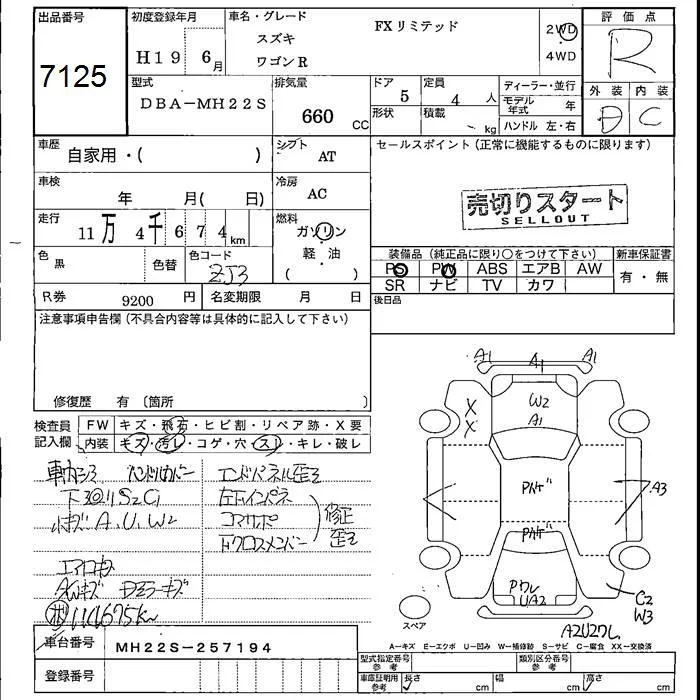 出品番号
7125
初度登録年月
H19 6月
車名・グレード
スズキ
ワゴンR
FXリミテッド
2WD
4WD
評価点
R
外装 内装
D C
型式
DBA-MH22S
排気量
660 CC
ドア
5
定員
4 人
形状
積載
kg
ディーラー・並行
モデル年式 年
ハンドル 左・右
車歴
自家用・( )
シフト
AT
セールスポイント(正常に機能するものに限ります)
売切りスタート
SELLOUT
車検
年 月( 日)
冷房
AC
走行
11万4千674km
燃料
ガソリン
軽・油
( )
色
黒
色替
色コード
ZJ3
装備品(純正品に限り○をつけて下さい)
新車保証書
PS PW ABS エアB AW
SR ナビ TV カワ
有・無
R券 9200 円
名変期限 月 日
後日品
注意事項申告欄(不具合内容等は具体的に記入して下さい)
修復歴 有(箇所 )
検査員記入欄
FW キズ・飛石・ヒビ割・リペア跡・X要
内装 キズ・汚レ・コゲ・穴・スレ・キレ・破レ
ハンドルカバー
エンドパネル歪ミ
下廻りS2C1
左Fインパネ
小キズA.U.W2
コアサポ
Fクロスメンバー
修正
歪ミ
エアロキズ
AWキズ
Dミラーキズ
114675km
A1 A1 A1
W2
A1
X
X
A3
C2
W3
UA2
スペア
車台番号
MH22S-257194
登録番号
A-キズ E-エクボ U-凹み W-補修跡 S-サビ C-腐食 XX-交換済
型式指定番号 参考
類別区分番号 参考
車庫証明用 参考
長さ cm
幅 cm
高さ cm